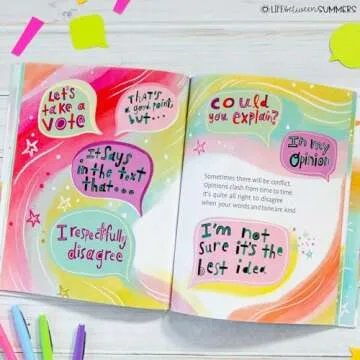 © LIFE between SUMMERS
Let's
take a
VOTE
THAT'S
a good point,
but...
It Says
in the text
that...
I respectfully
disagree
COULD
you explain?
In my
Opinion
Sometimes there will be conflict.
Opinions clash from time to time
It's quite all right to disagree
when your words and tone are kind.
I'm not
sure it's the
best idea